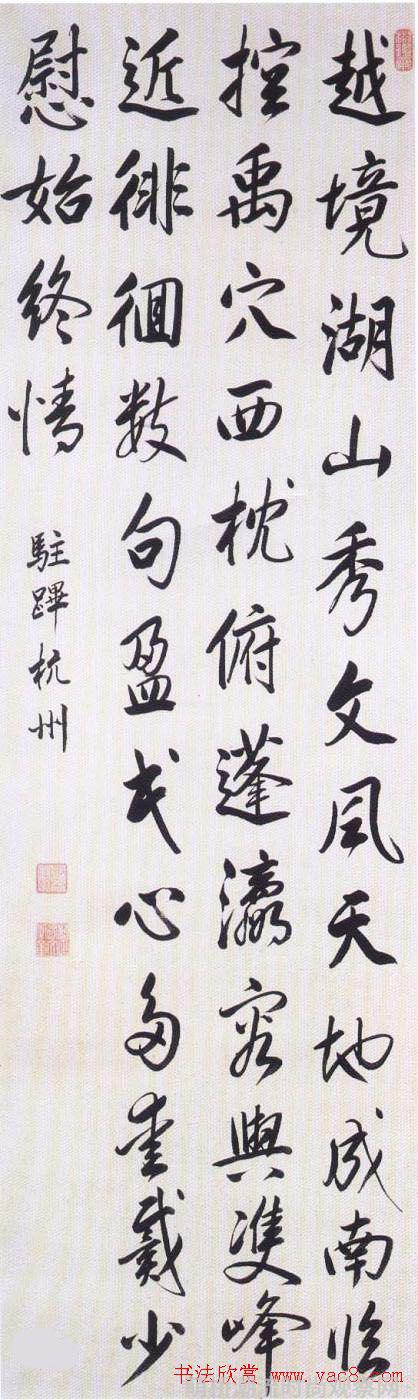 越境湖山秀文風天地成南臨
控禹穴西枕俯蓬瀛容與雙峰
近徘徊數句盈民心多愛戴少
慰始終情
駐蹕杭州
书法欣赏 www.yac8.com